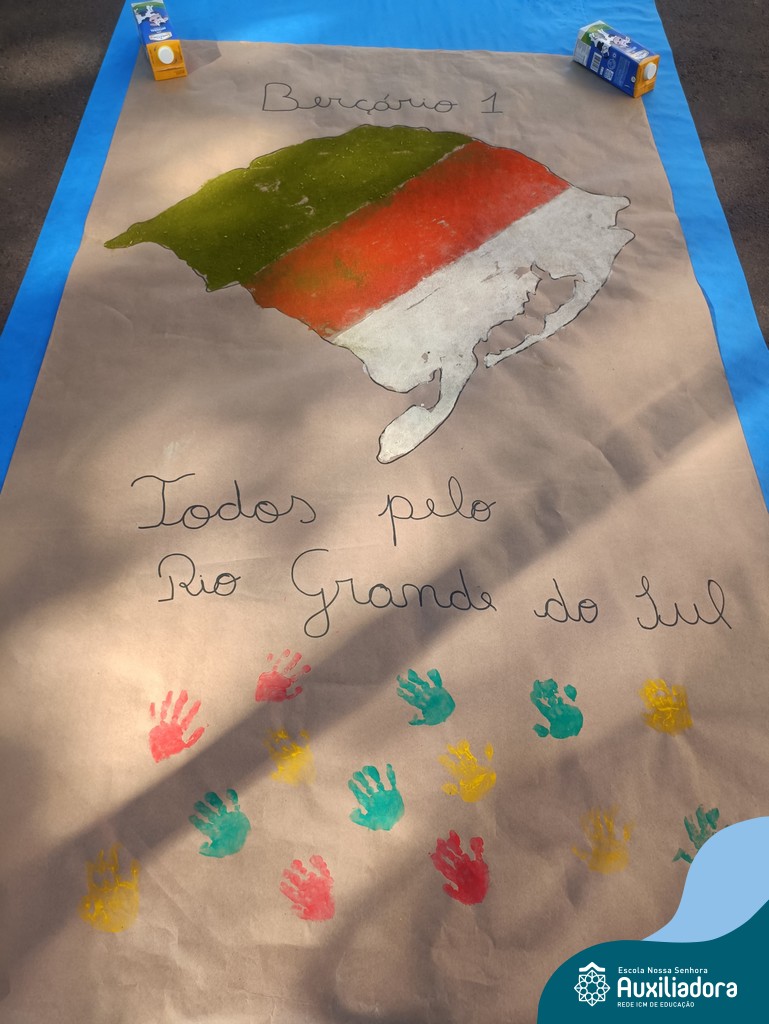 Berçário 1
Todos pelo
Rio Grande do Sul
Escola Nossa Senhora
Auxiliadora
REDE ICM DE EDUCAÇÃO